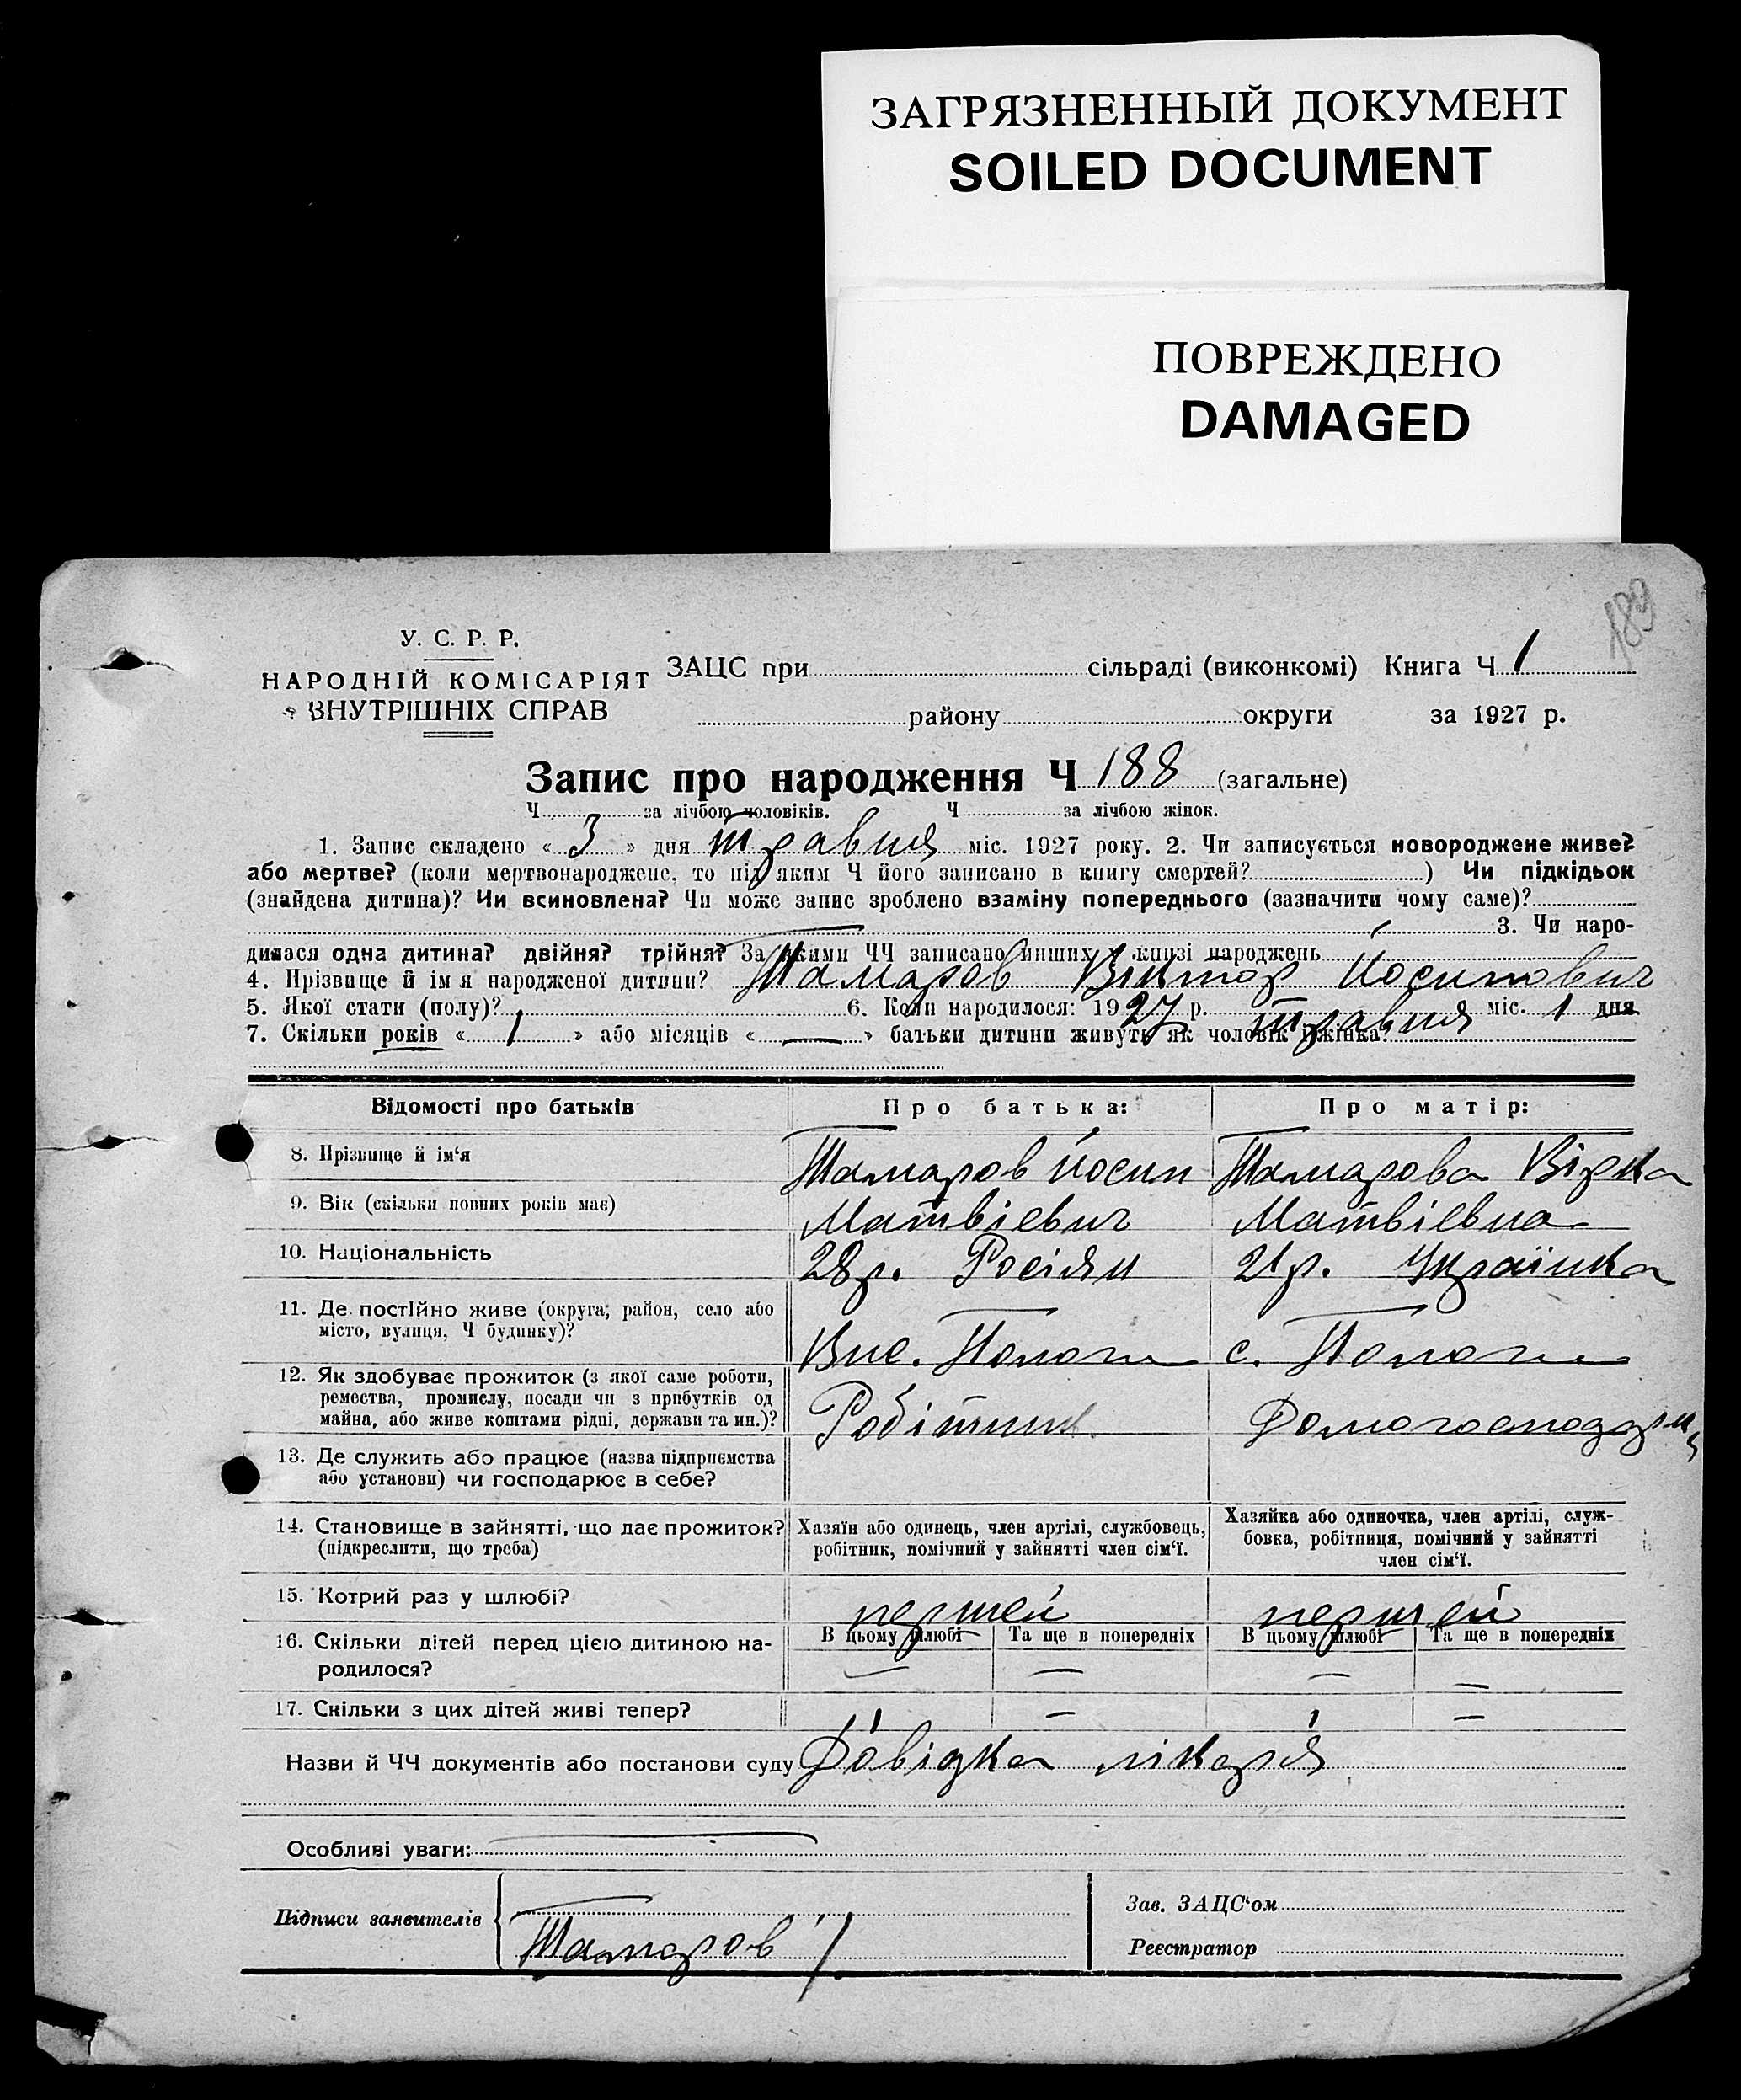 ЗАГРЯЗНЕННЫЙ ДОКУМЕНТ
SOILED DOCUMENT
ПОВРЕЖДЕНО
DAMAGED
189
У. С. Р. Р.
НАРОДНІЙ КОМІСАРІЯТ
ВНУТРІШНІХ СПРАВ
ЗАЦС при сільраді (виконкомі) Книга Ч 1
району округи за 1927 р.
Запис про народження Ч 188 (загальне)
Ч за лічбою чоловіків. Ч за лічбою жінок.
1. Запис складено « 3 » дня травня міс. 1927 року. 2. Чи записується новороджене живе?
або мертве? (коли мертвонароджене, то під яким Ч його записано в книгу смертей? ) Чи підкідьок
(знайдена дитина)? Чи всиновлена? Чи може запис зроблено взаміну попереднього (зазначити чому саме)?
3. Чи наро-
дилася одна дитина? двійня? трійня? За якими ЧЧ записано инших у книзі народжень
4. Прізвище й ім я народженої дитини? Тамаров Віктор Йосипович
5. Якої стати (полу)? 6. Коли народилося: 1927 р. травня міс. 1 дня
7. Скільки років « 1 » або місяців « — » батьки дитини живуть як чоловік і жінка?
Відомості про батьків
Про батька:
Про матір:
8. Прізвище й ім‘я
Тамаров Йосип
Тамарова Вірка
9. Вік (скільки повних років має)
Матвієвич
Матвієвна
10. Національність
28 р. Росіян
21 р. Українка
11. Де постійно живе (округа, район, село або
місто, вулиця, Ч будинку)?
с. Пологи
12. Як здобуває прожиток (з якої саме роботи,
ремества, промислу, посади чи з прибутків од
майна, або живе коштами рідні, держави та ин.)?
Робітник
13. Де служить або працює (назва підприємства
або установи) чи господарює в себе?
14. Становище в зайнятті, що дає прожиток?
(підкреслити, що треба)
Хазяїн або одинець, член артілі, службовець,
робітник, помічний у зайнятті член сім‘ї.
Хазяйка або одиночка, член артілі, служ-
бовка, робітниця, помічний у зайнятті
член сім‘ї.
15. Котрий раз у шлюбі?
першей
першей
16. Скільки дітей перед цією дитиною на-
родилося?
В цьому шлюбі
Та ще в попередніх
В цьому шлюбі
Та ще в попередніх
— — — —
17. Скільки з цих дітей живі тепер?
1 — 1 —
Назви й ЧЧ документів або постанови суду Довідка лікаря
Особливі уваги:
Підписи заявителів
Тамаров
Зав. ЗАЦС‘ом
Реєстратор